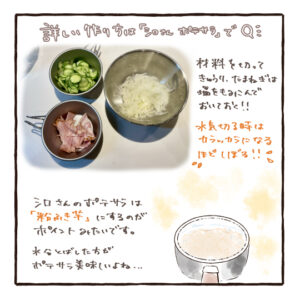 詳しい作り方は「シロさん ポテサラ」でQ:
材料を切って
きゅうり、たまねぎは
塩をもみこんで
おいておくと!!
水気切る時は
カラッカラになる
ほどしぼる!!
シロさんのポテサラは
「粉ふき芋」にするのが
ポイントみたいです。
水分とばした方が
ポテサラ美味しいよね...